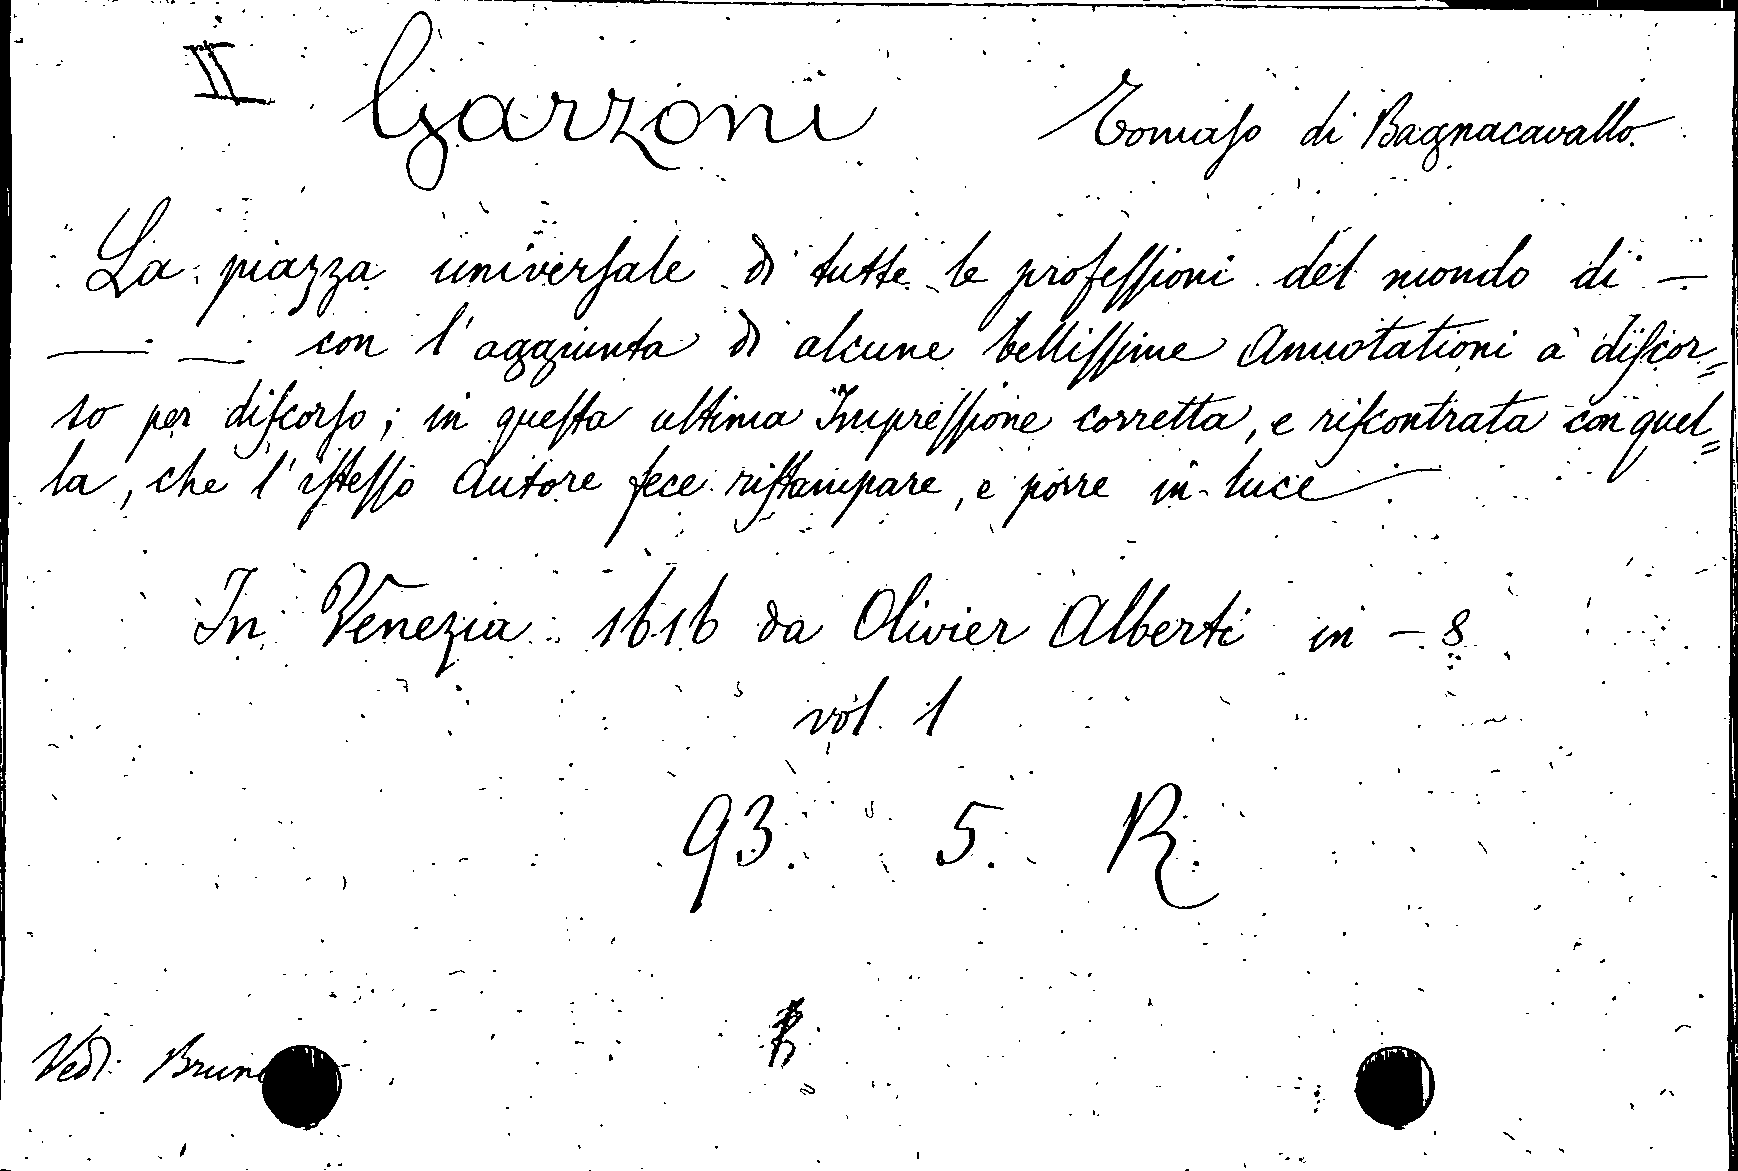 II Garzoni Tomaſo di Bagnacavallo.
La piazza univerſale di tutte le profeſſioni del mondo di —
— — con l'aggiunta di alcune belliſſime Annotationi à diſcor=
so per diſcorſo; in queſta ultima Impreſſione corretta, e riſcontrata con quel=
la, che l'iſteſſo Autore fece riſtampare, e porre in luce
In Venezia 1616 da Olivier Alberti in - 8
vol. 1
93. 5. R.
R
Vedi Brun